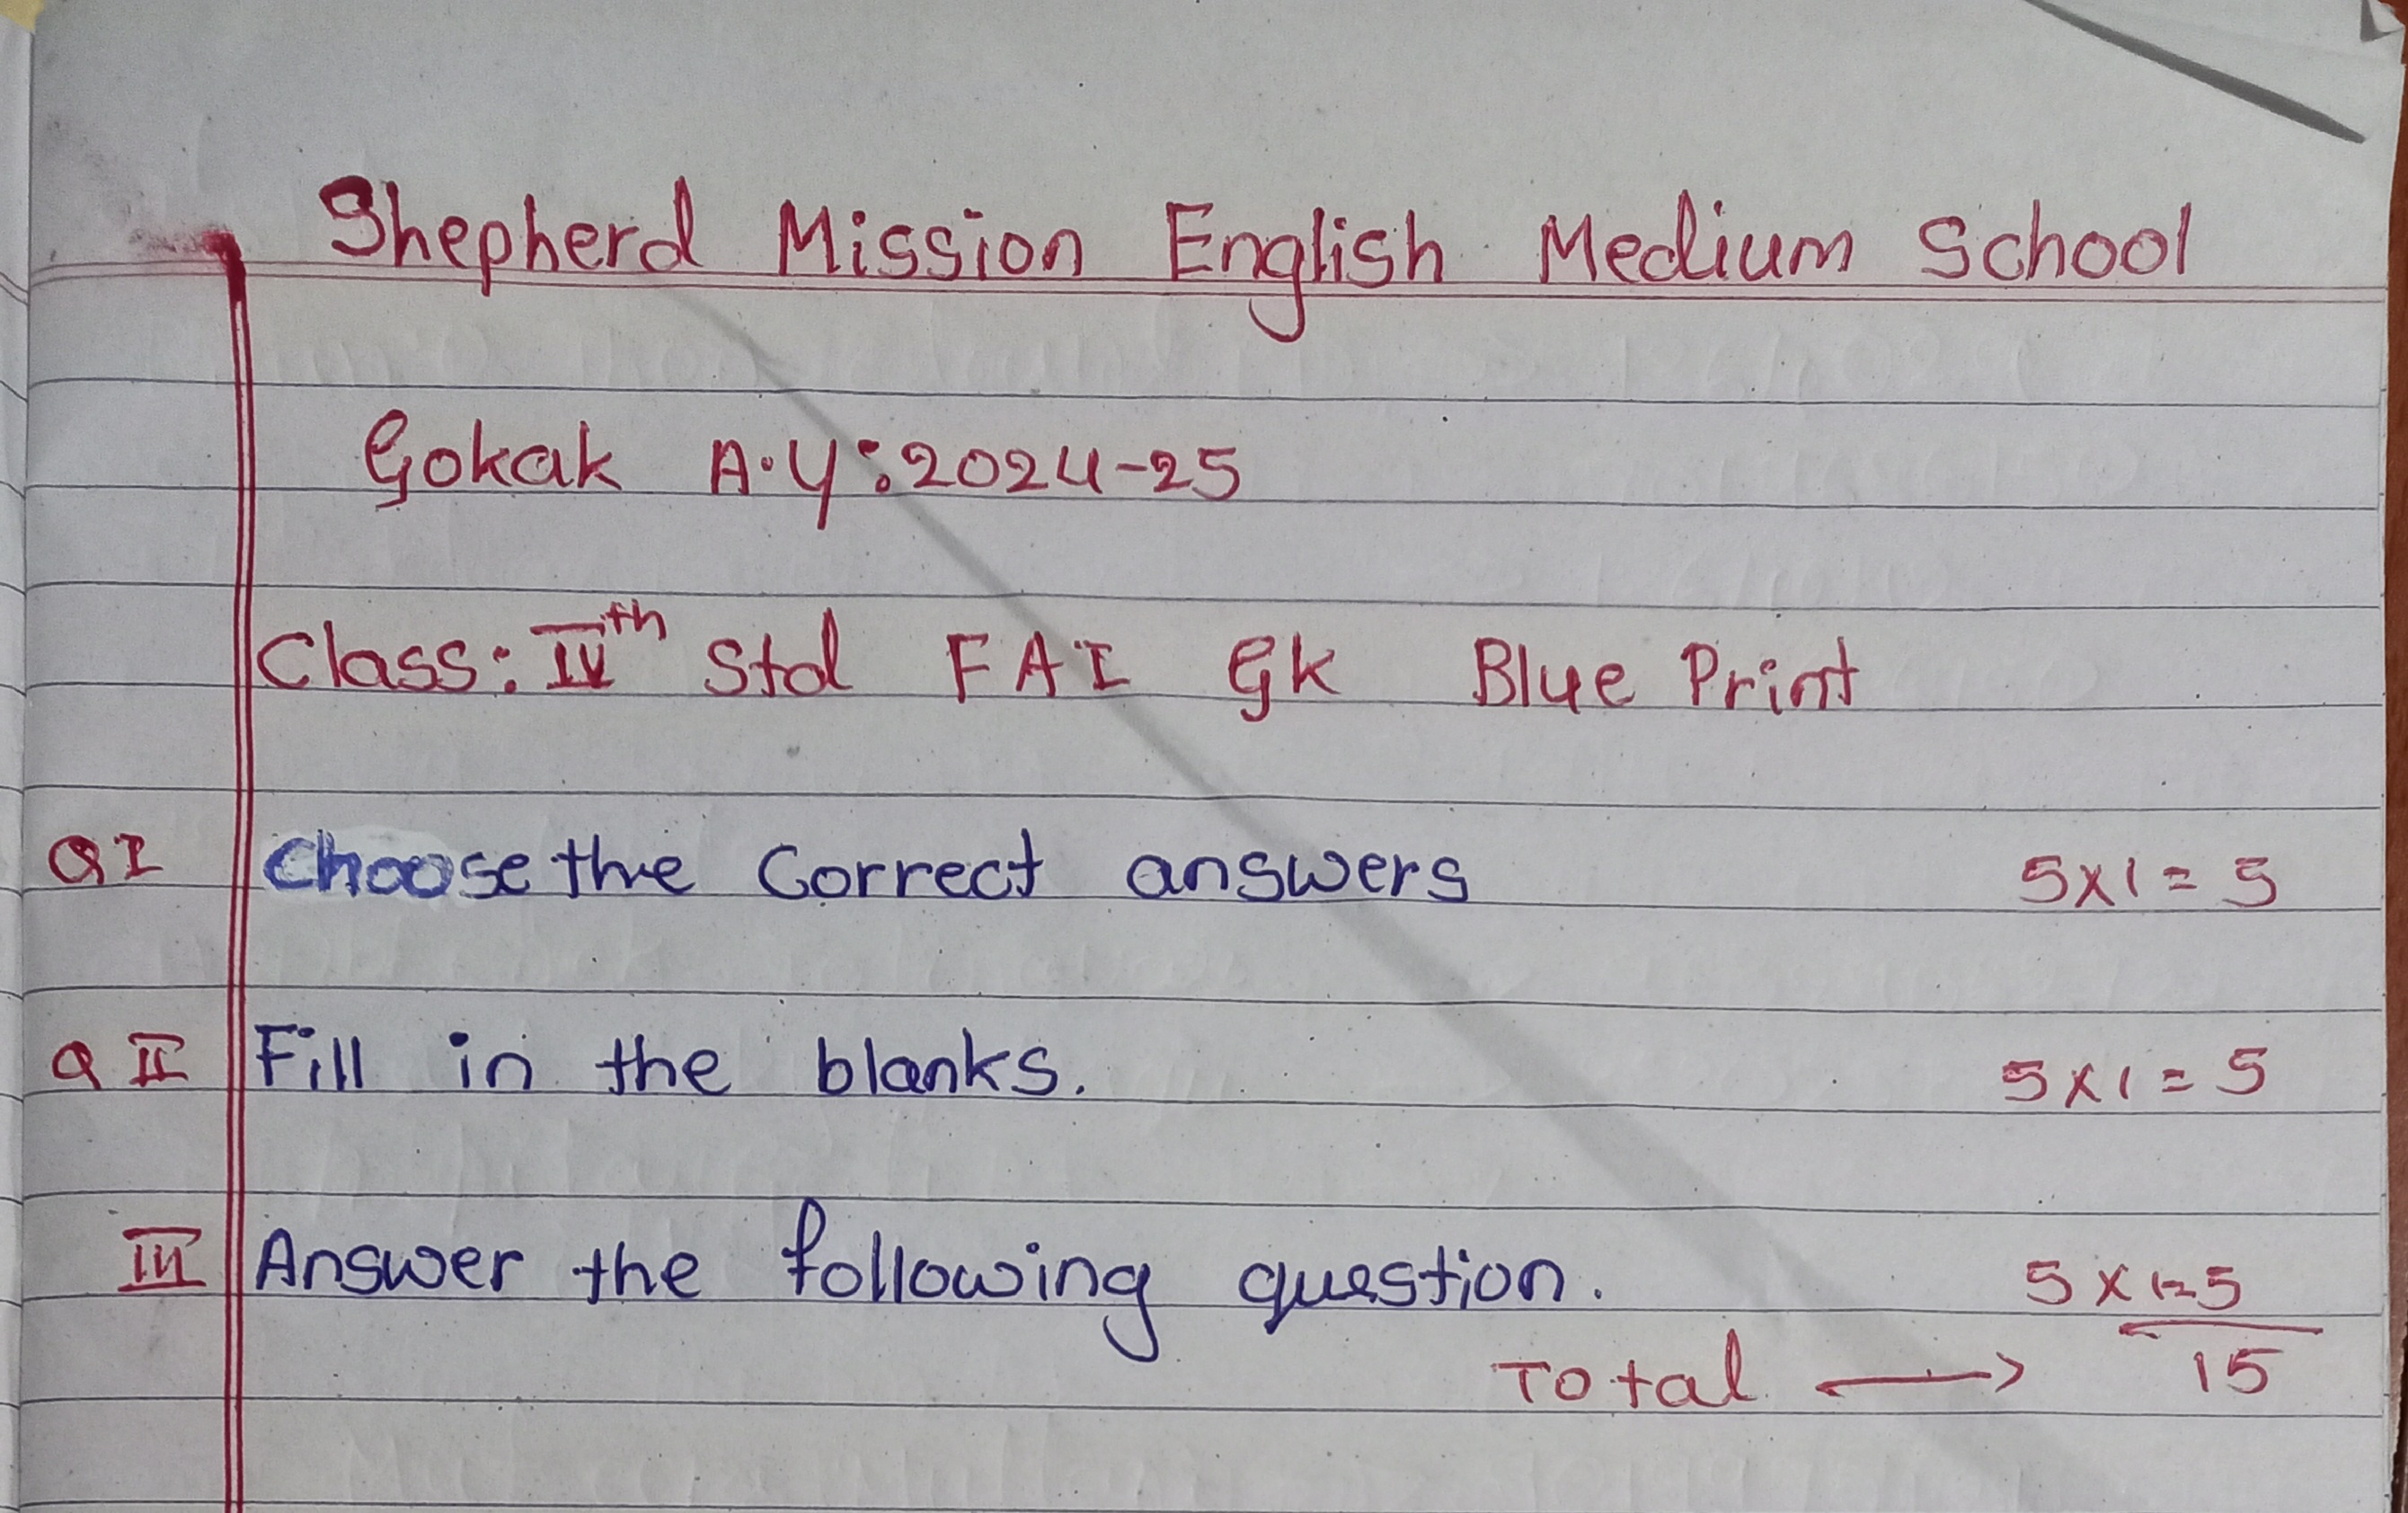 Shepherd Mission English Medium School
Gokak A.Y:2024-25
Class: IVth Std FA I Gk Blue Print
Q I Choose the Correct answers 5x1=5
Q II Fill in the blanks. 5x1=5
III Answer the following question. 5x1=5
Total → 15